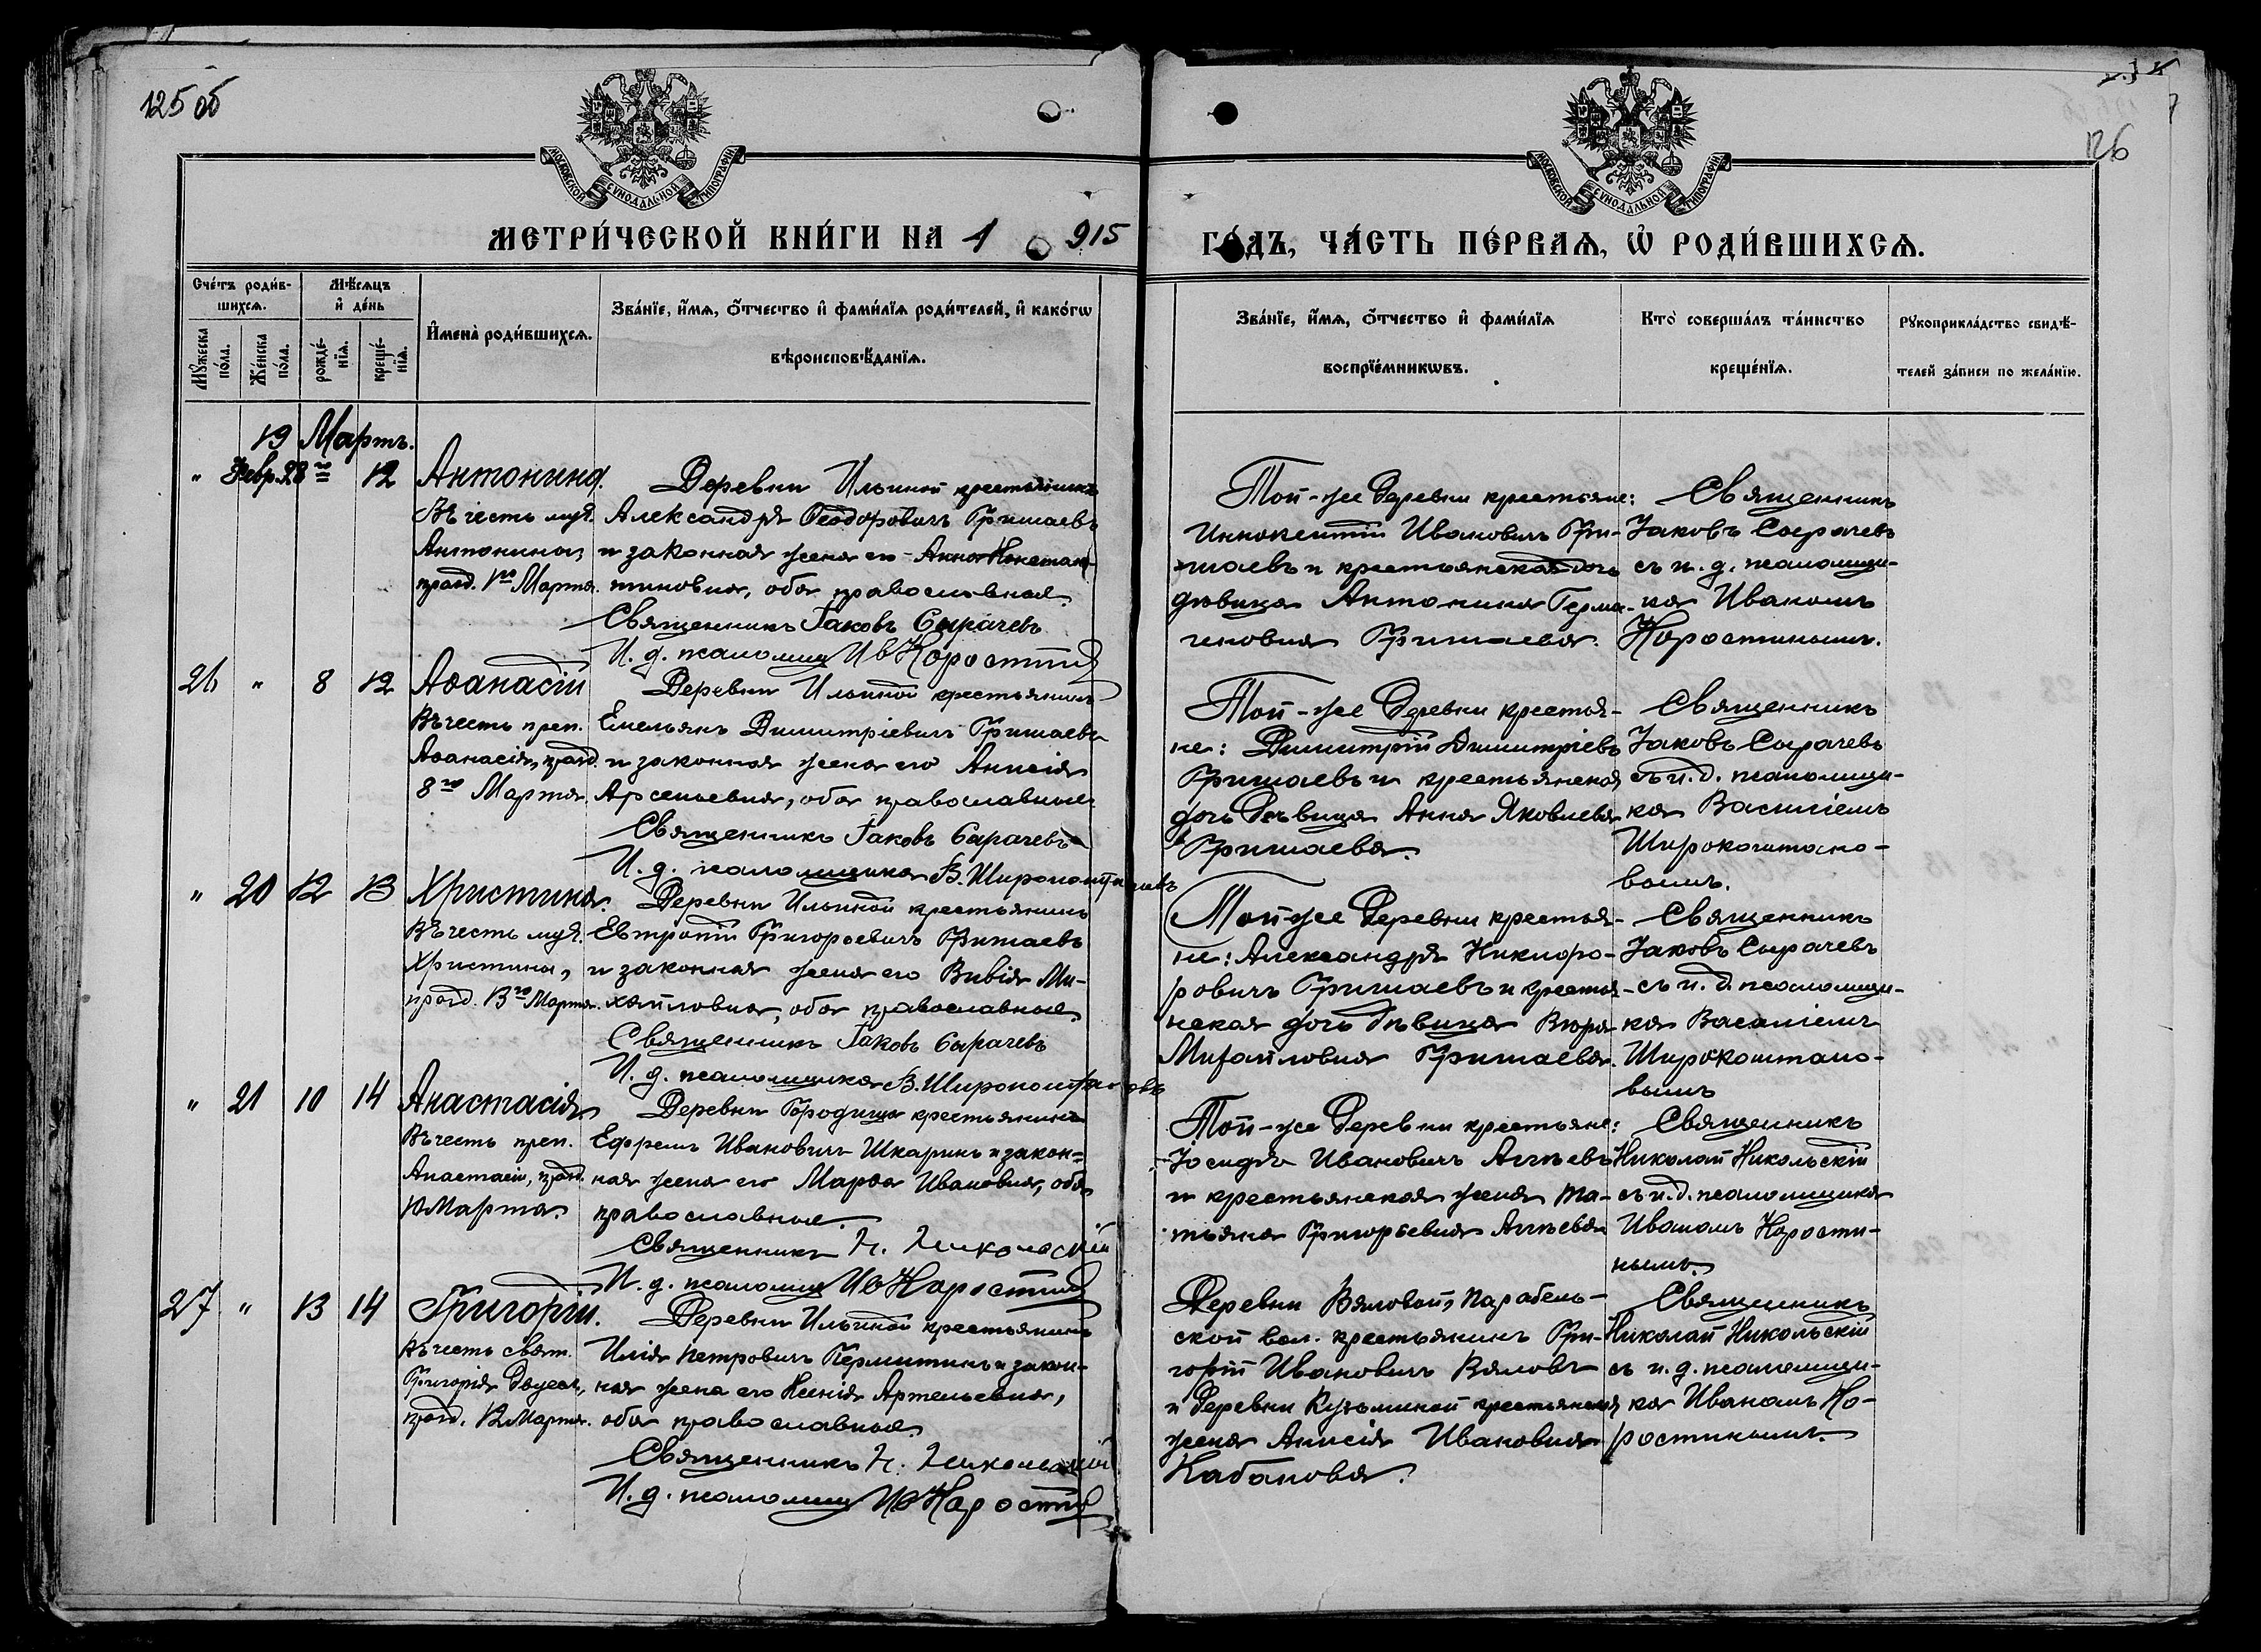 125 об
126
МОСКОВСКОЙ СѴНОДАЛЬНОЙ ТИПОГРАФІИ
МОСКОВСКОЙ СѴНОДАЛЬНОЙ ТИПОГРАФІИ
МЕТРИ́ЧЕСКОЙ КНИ́ГИ НА 1915
ГО́ДЪ, ЧА́СТЬ ПЕ́РВАѦ, Ѽ РОДИ́ВШИХСѦ.
Сче́тъ роди́в-
шихсѧ.
Мѣ́сѧцъ
и҆ де́нь
Мꙋ́жеска
по́ла.
Же́нска
по́ла.
рожде́-
нїѧ.
креще́-
нїѧ.
И҆мена̀ роди́вшихсѧ.
Зва́нїе, и҆́мѧ, ѻ҆́тчество и҆ фами́лїѧ роди́телей, и҆ како́гѡ
вѣроисповѣ́данїѧ.
Зва́нїе, и҆́мѧ, ѻ҆́тчество и҆ фами́лїѧ
воспрїе́мникѡвъ.
Кто̀ соверша́лъ та́инство
креще́нїѧ.
Рꙋкоприкла́дство свидѣ́-
телей за́писи по жела́нїю.
19 Мартъ.
" Февр. 28го 12 Антонина.
Въ честь муч.
Антонины,
празд. 1го Марта.
Деревни Ильиной крестьянинъ
Александръ Ѳеодоровичъ Гришаевъ
и законная жена его Анна Констан-
тиновна, оба православные.
Священникъ Іаковъ Сырачевъ
И. д. псаломщ Ив Коростин
Той-же деревни крестьяне:
Иннокентій Ивановичъ Гри-
шаевъ и крестьянская дочь
дѣвица Антонина Герма-
геновна Гришаева.
Священникъ
Іаковъ Сырачевъ
съ и. д. псаломщи-
ка Иваномъ
Коростинымъ.
26 " 8 12 Аѳанасій
Въ честь преп.
Аѳанасія, празд.
8го Марта.
Деревни Ильиной крестьянинъ
Емельянъ Димитріевичъ Гришаевъ
и законная жена его Анисія
Арсеньевна, оба православные
Священникъ Іаковъ Сырачевъ
И. д. псаломщика В. Широкоштановъ
Той-же деревни крестья-
не: Димитрій Димитріевъ
Гришаевъ и крестьянская
дочь дѣвица Анна Яковлева
Гришаева.
Священникъ
Іаковъ Сырачевъ
съ и. д. псаломщи-
ка Василіемъ
Широкоштано-
вымъ.
" 20 12 13 Христина.
Въ честь муч.
Христины,
празд. 13го Марта.
Деревни Ильиной крестьянинъ
Евтропій Григорьевичъ Гришаевъ
и законная жена его Вивія Ми-
хайловна, оба православные.
Священникъ Іаковъ Сырачевъ
И. д. псаломщика В. Широкоштановъ
Той-же деревни крестья-
не: Александръ Никифо-
ровичъ Гришаевъ и крестья-
нская дочь дѣвица
Михайловна Гришаева.
Священникъ
Іаковъ Сырачевъ
съ и. д. псаломщи-
ка Василіемъ
Широкоштано-
вымъ
" 21 10 14 Анастасія.
Въ честь преп.
Анастасіи, празд.
10 Марта.
Деревни Городища крестьянинъ
Ефремъ Ивановичъ Шкаринъ и закон-
ная жена его Марѳа Ивановна, оба
православные.
Священникъ Н. Никольскій
И. д. псаломщ Ив Коростин
Той-же деревни крестьяне:
Іосифъ Ивановичъ Агѣевъ
и крестьянская жена Та-
тьяна Григорьевна Агѣева
Священникъ
Николай Никольскій
съ и. д. псаломщика
Иваномъ Корости-
нымъ.
27 " 13 14 Григорій.
Въ честь свят.
Григорія Двоесл.,
празд. 12 Марта.
Деревни Ильиной крестьянинъ
Илія Петровичъ Пермитинъ и закон-
ная жена его Ксенія Артемьевна,
оба православные.
Священникъ Н. Никольскій
И. д. псаломщ Ив Коростин
Деревни Вяловой, Парабель-
ской вол. крестьянинъ Гри-
горій Ивановичъ Вяловъ
и деревни Кузьминой крестьянская
жена Анисія Ивановна
Кабанова.
Священникъ
Николай Никольскій
съ и. д. псаломщи-
ка Иваномъ Ко-
ростинымъ.